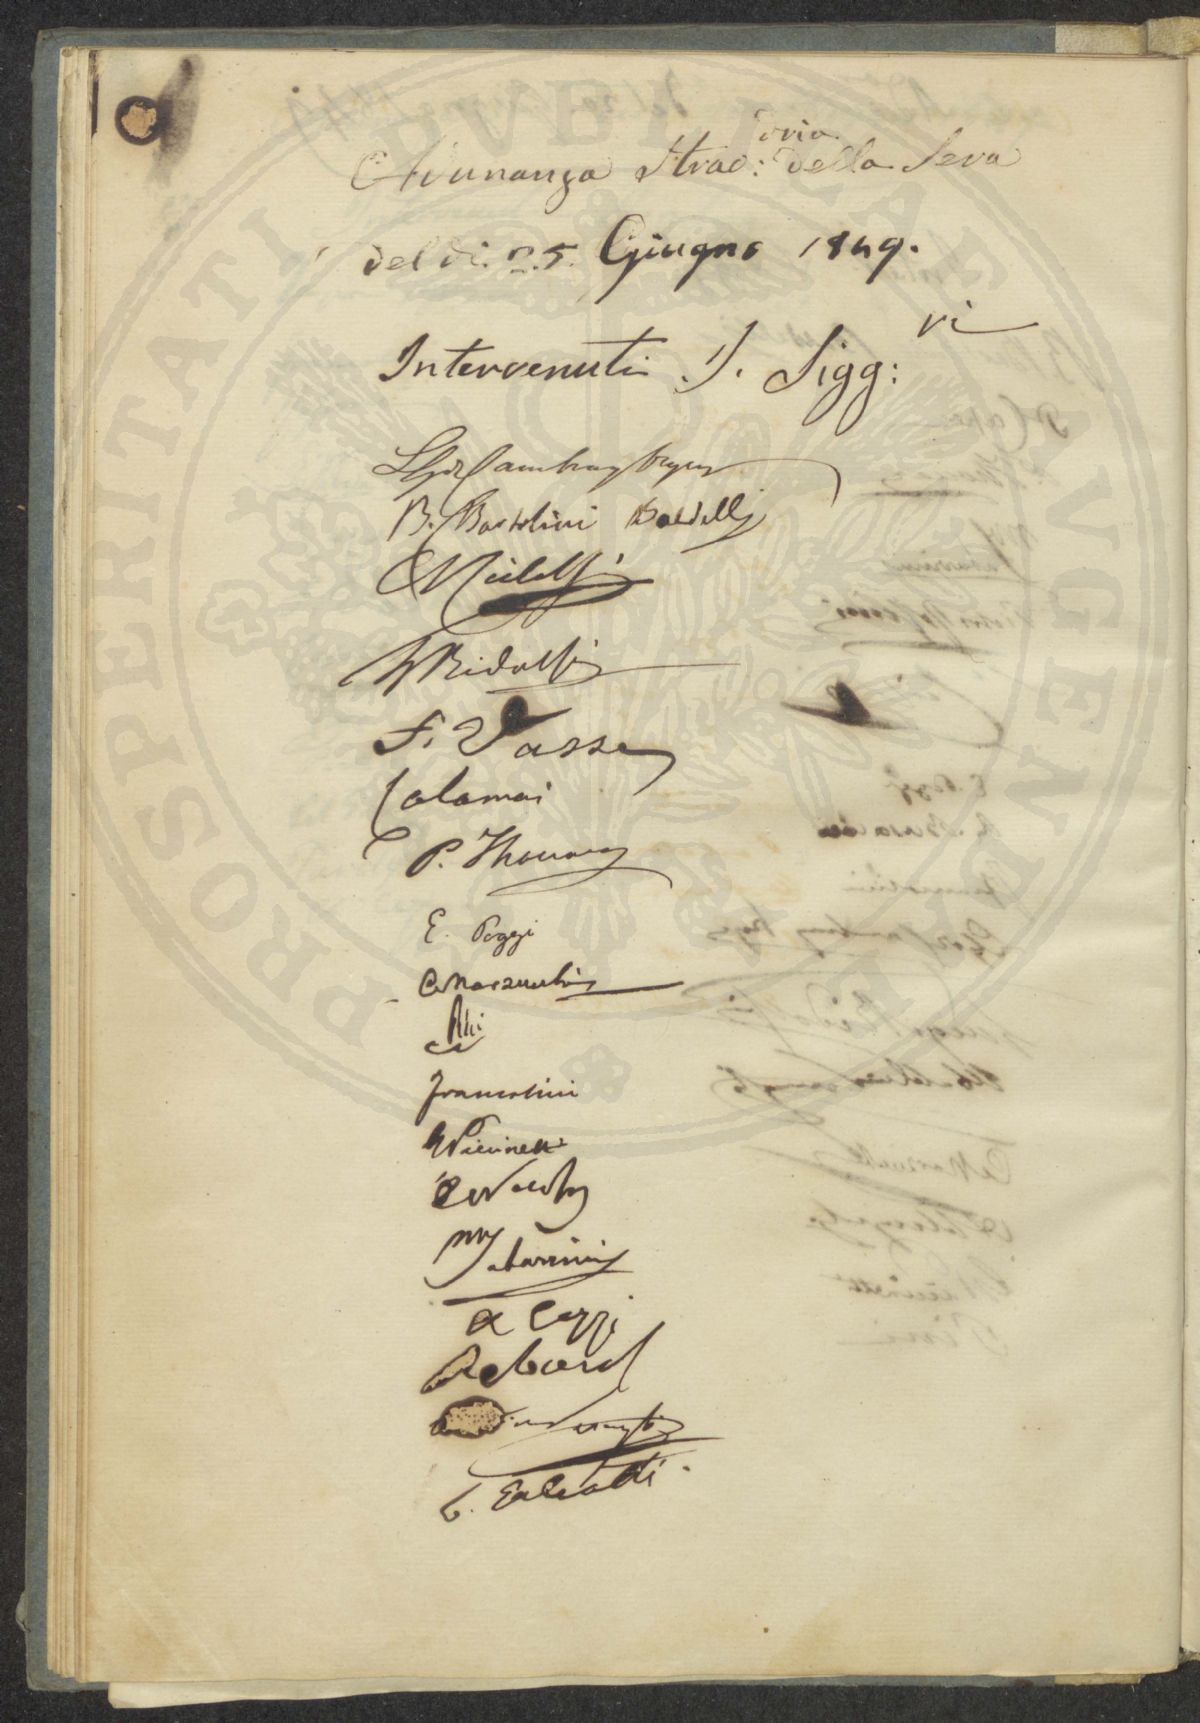 Adunanza Strao:oria della Sera
del dì. 25. Giugno 1849.
Intervenuti I. Sigg:ri
L. G. de Cambray Digny
B. Bartolini Baldelli
C Ridolfi
L Ridolfi
F. Vasse
Calamai
P. Thouar
E. Poggi
C. Marzucchi
Francolini
M Tabarrini
A Cozzi
E. Galeotti.
PROSPERITATI PUBLICAE AUGENDAE